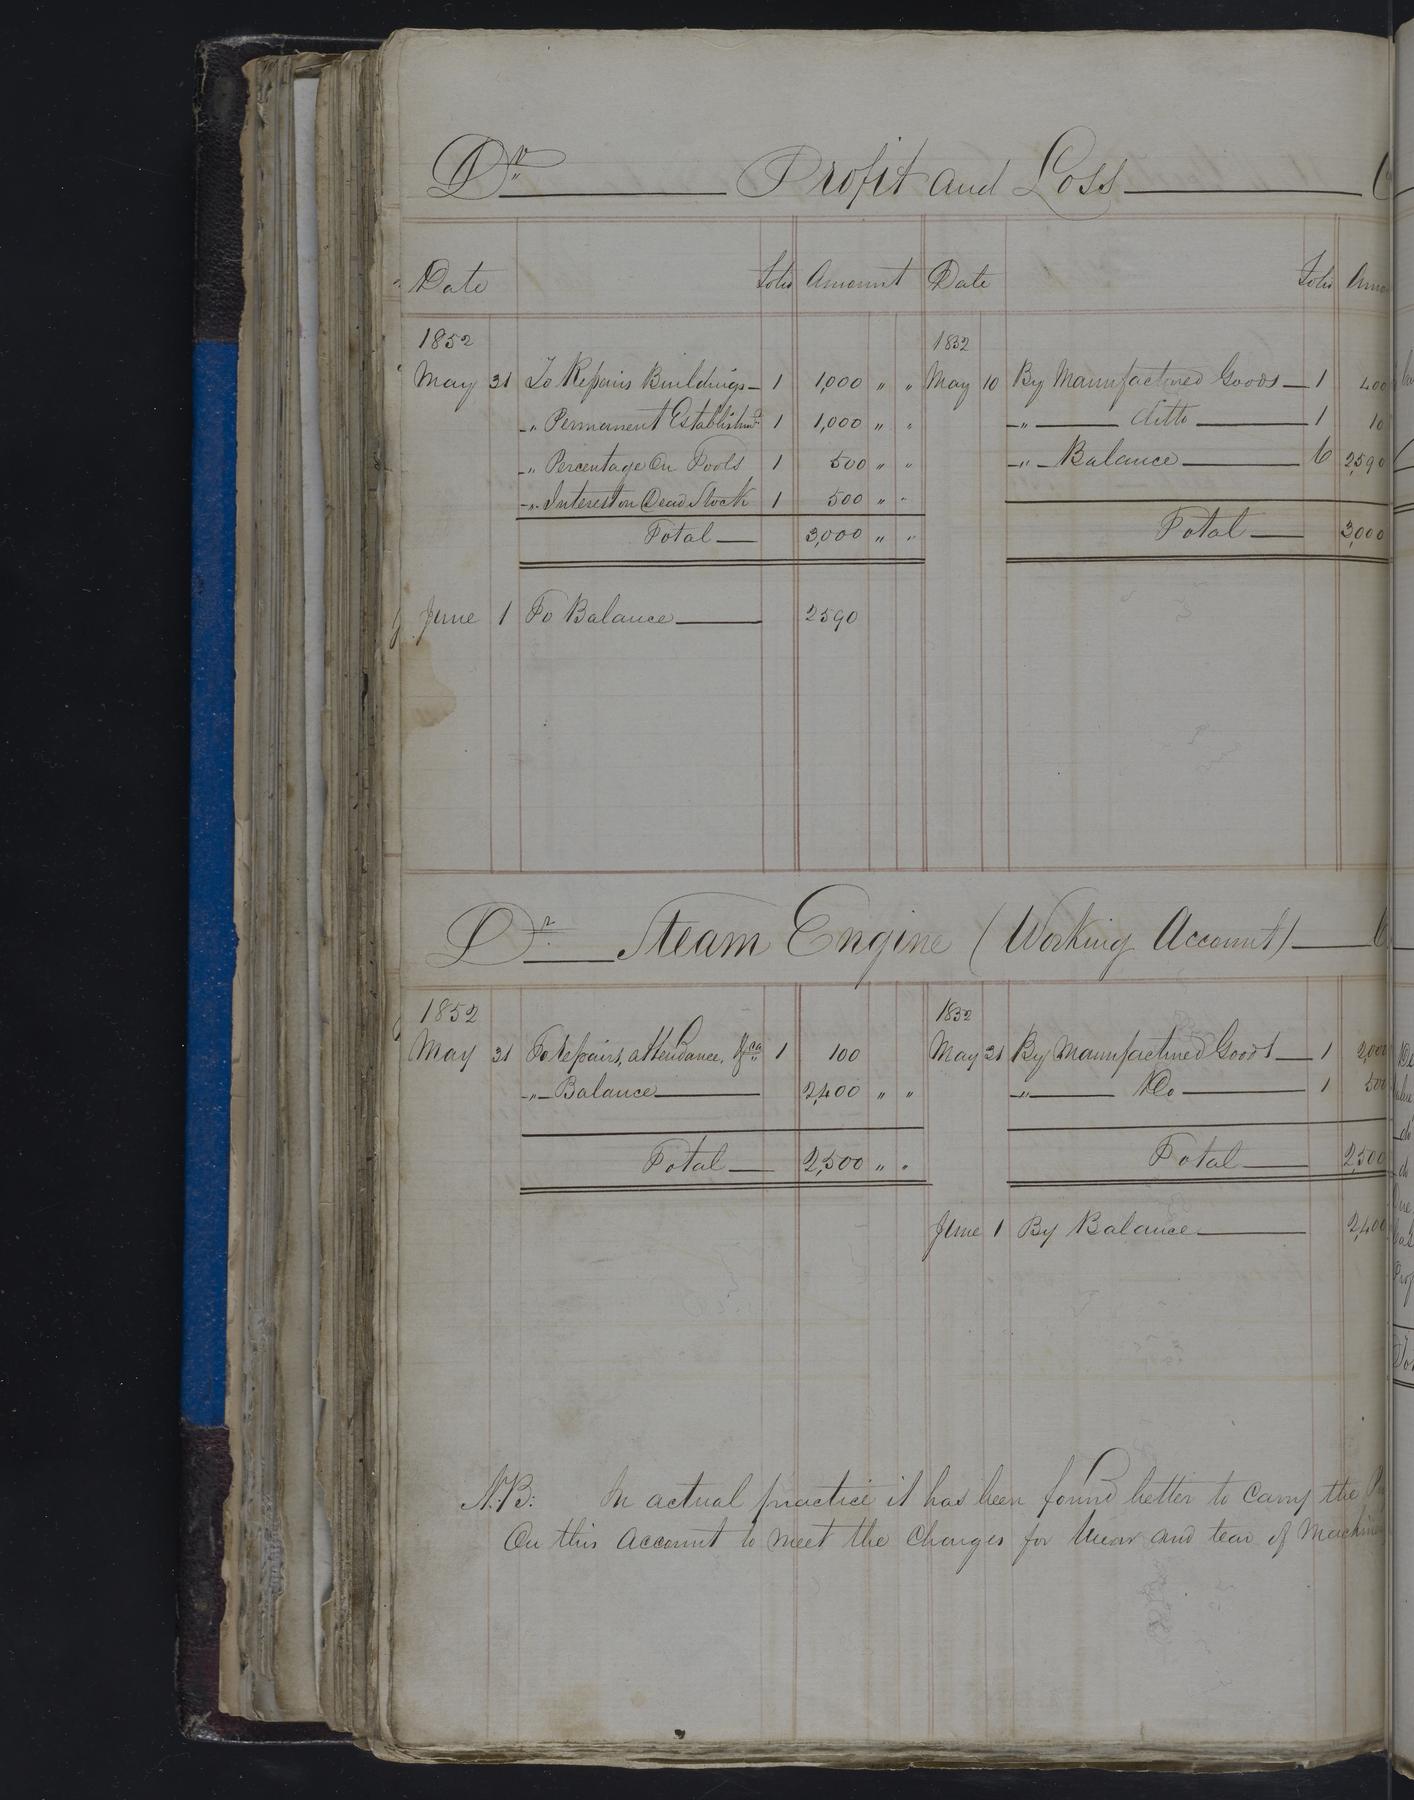 Dr Profit and Loss C
Date Folio Amount Date Folio Amo
1852 1852
May 31 To Repairs Buildings 1 1,000 " " May 10 By Manufactured Goods 1 400
" Permanent Establishmt 1 1,000 " " " ditto 1 10
" Percentage On Tools 1 500 " " " Balance 6 2590
" Interest on Dead Stock 1 500 " "
Total 3,000 " " Total 3,000
June 1 To Balance 2590
Dr Steam Engine (Working Account) C
1852 1852
May 31 To Repairs, attendance, &ca 1 100 May 31 By Manufactured Goods 1 2,000
" Balance 2,400 " " " Do 1 500
Total 2,500 " " Total 2,500
June 1 By Balance 2,400
N.B: In actual practice it has been found better to carry the
On this account to meet the Charges for Wear and tear of Machine